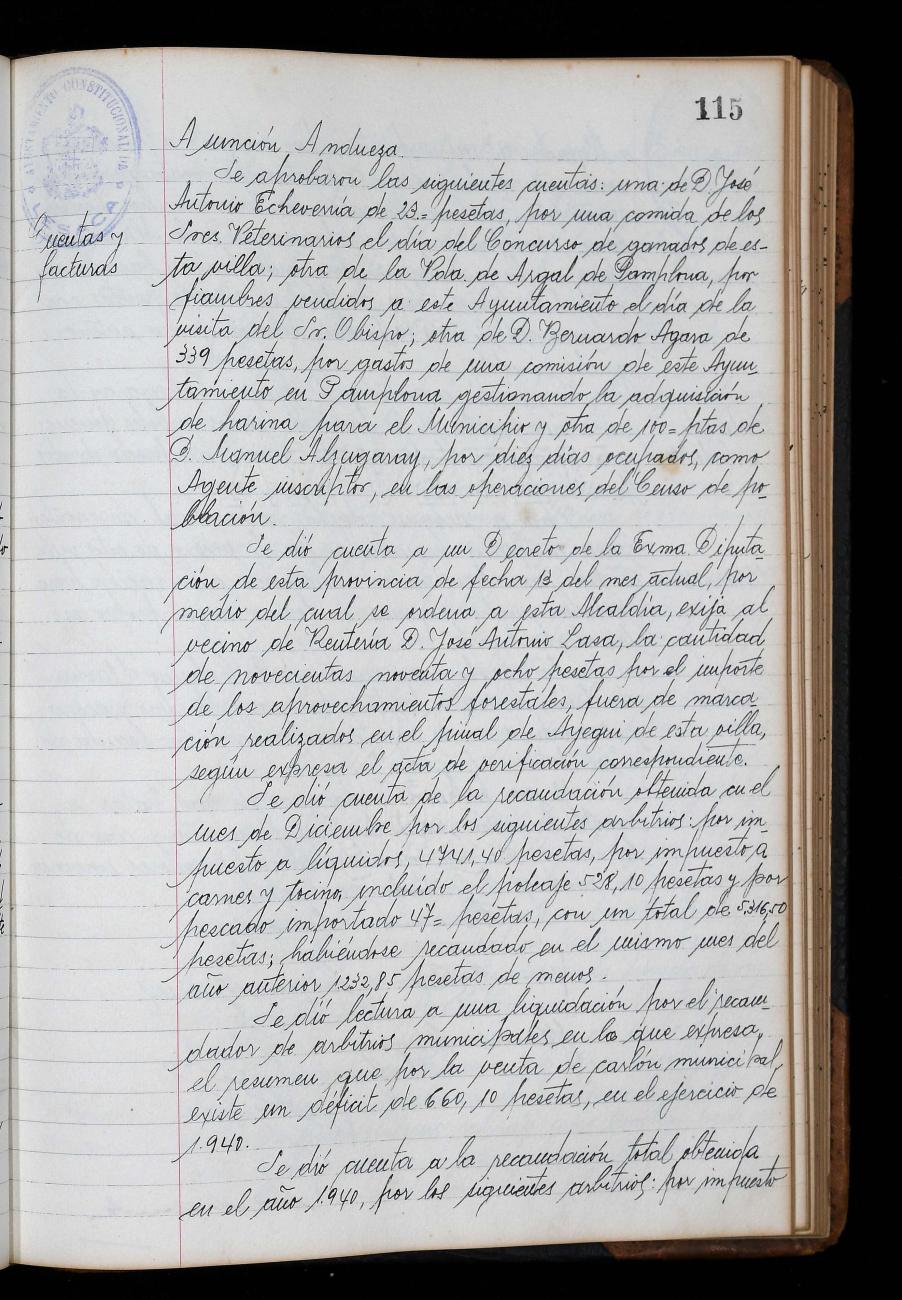 115
AYUNTAMIENTO CONSTITUCIONAL DE LESACA
Asunción Andueza.
Cuentas y
facturas
Se aprobaron las siguientes cuentas: una de D. José
Antonio Echeverría de 23= pesetas, por una comida de los
Sres. Veterinarios el día del Concurso de ganados de es-
ta villa; otra de la Vda. de Argal de Pamplona, por
fiambres vendidos a este Ayuntamiento el día de la
visita del Sr. Obispo; otra de D. Bernardo Agara de
339 pesetas, por gastos de una comisión de este Ayun-
tamiento en Pamplona gestionando la adquisición
de harina para el Municipio y otra de 100= ptas de
D. Manuel Alzugaray, por diez días ocupados, como
Agente inscriptor, en las operaciones del Censo de po-
blación.
Se dió cuenta a un Decreto de la Exma. Diputa-
ción de esta provincia de fecha 13 del mes actual, por
medio del cual se ordena a esta Alcaldía, exija al
vecino de Rentería D. José Antonio Lasa, la cantidad
de novecientas noventa y ocho pesetas por el importe
de los aprovechamientos forestales, fuera de marca-
ción realizados en el pinal de Ayegui de esta villa,
según expresa el acta de verificación correspondiente.
Se dió cuenta de la recaudación obtenida en el
mes de Diciembre por los siguientes arbitrios: por im-
puesto a líquidos, 4741,40 pesetas, por impuesto a
carnes y tocino, incluído el poleaje 528,10 pesetas y por
pescado importado 47= pesetas, con un total de 5.316,50
pesetas; habiéndose recaudado en el mismo mes del
año anterior 1232,85 pesetas de menos.
Se dió lectura a una liquidación por el recau-
dador de arbitrios municipales en la que expresa,
el resumen que por la venta de carbón municipal,
existe un déficit de 660,10 pesetas, en el ejercicio de
1.940.
Se dió cuenta a la recaudación total obtenida
en el año 1.940, por los siguientes arbitrios: por impuesto